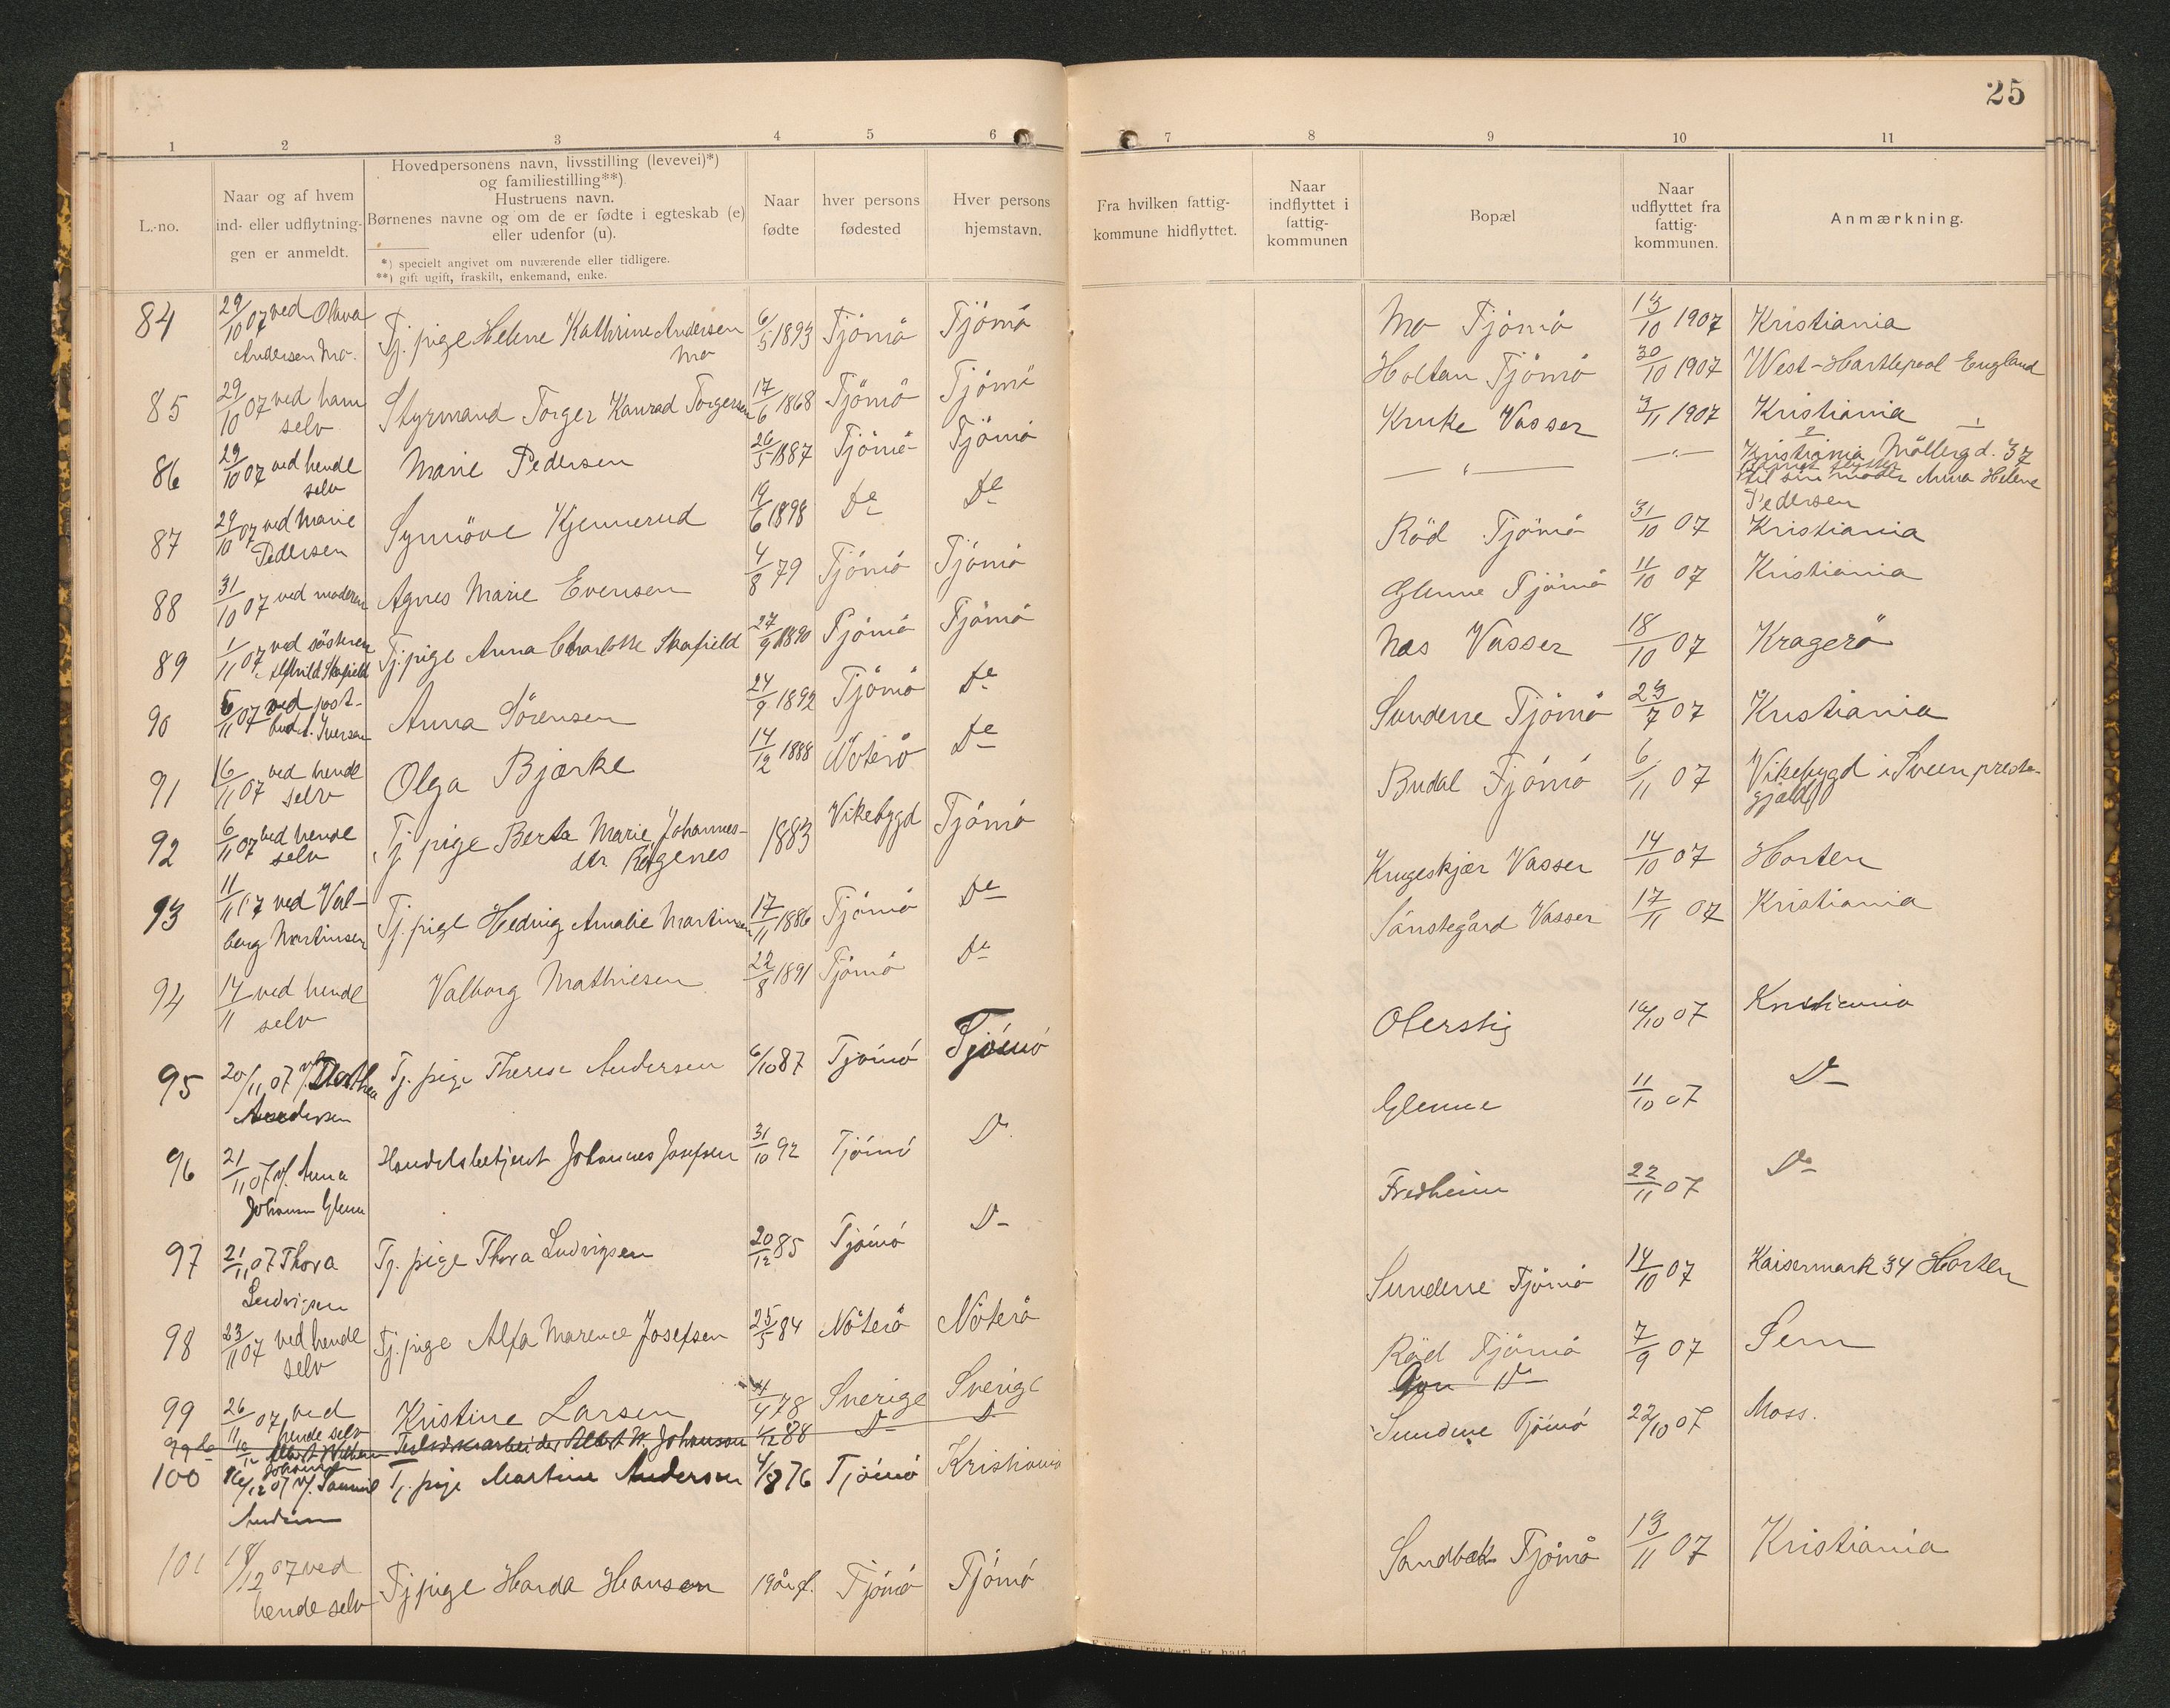 25
1 2 3 4 5 6 7 8 9 10 11
L.-no.
Naar og af hvem
ind- eller udflytnin-
gen er anmeldt.
Hovedpersonens navn, livsstilling (levevei)*)
og familiestilling**)
Hustruens navn.
Børnenes navne og om de er fødte i egteskab (e)
eller udenfor (u).
*) specielt angivet om nuværende eller tidligere.
**) gift ugift, fraskilt, enkemand, enke.
Naar
fødte
hver persons
fødested
Hver persons
hjemstavn.
Fra hvilken fattig-
kommune hidflyttet.
Naar
indflyttet i
fattig-
kommunen
Bopæl
Naar
udflyttet fra
fattig-
kommunen.
Anmærkning.
84 29/10 07 ved Olava Tj. pige Helene Kathrine Andersen 6/5 1893 Tjömö Tjömö Mo Tjömö 13/10 1907 Kristiania
Andersen Mo. Mo
85 29/10 07 ved ham Styrmand Torger Konrad Torgersen 17/6 1868 Tjömö Tjömö Holtan Tjömö 30/10 1907 West-Hartlepool England
selv
86 29/10 07 ved hende Marie Pedersen 26/5 1887 Tjömö Tjömö Kruke Vasser 3/11 1907 Kristiania
selv
87 29/10 07 ved Marie Synnöve Kjennerud 19/6 1898 De De — " — — " — Kristiania Möllergd. 37
Pedersen til sin moder Anna Helene
Pedersen
88 31/10 07 ved moderen Agnes Marie Evensen 4/8 79 Tjömö Tjömö Röd Tjömö 31/10 07 Kristiania
89 1/11 07 ved søsteren Tj. pige Anna Charlotte Skafjeld 27/9 1890 Tjömö Tjömö Glenne Tjömö 11/10 07 Kristiania
Skafjeld
90 5/11 07 ved post- Anna Sörensen 24/9 1892 Tjömö De Næs Vasser 18/10 07 Kragerö
bud Iversen
91 16/11 07 ved hende Olga Bjærke 14/12 1888 Nöterö De Sundene Tjömö 23/7 07 Kristiania
selv
92 6/11 07 ved hende Tj pige Berta Marie Johannes- 1883 Vikebygd Tjömö Budal Tjömö 6/11 07 Vikebygd i Sveen preste-
selv dtr gjæld
93 11/11 07 ved Val- Tj. pige Hedvig Amalie Martinsen 17/11 1886 Tjömö De Krugeskjær Vasser 14/10 07 Horten
borg Martinsen
94 14/11 ved hende Valborg Mathiesen 22/8 1891 Tjömö De Sönstegård Vasser 17/11 07 Kristiania
selv
95 20/11 07 v/ Dorthea Tj. pige Therese Andersen 6/10 87 Tjömö Tjömö Oterstig 16/10 07 Kristiania
Andersen
96 21/11 07 v/ Anna Handelsbetjent Johannes Josefsen 31/10 92 Tjömö Do Glenne 11/10 07 Do
Johansen Glenne
97 21/11 07 Thora Tj. pige Thora Ludvigsen 20/12 85 Tjömö Do Fredheim 22/11 07 Do
Ludvigsen
98 23/11 07 ved hende Tj. pige Alfa Marence Josefsen 25/5 84 Nöterö Nöterö Sundene Tjömö 14/10 07 Kaisermark 34 Horten
selv
99 26/11 07 ved Kristine Larsen 4/4 78 Sverige Sverige Röd Tjömö 7/9 07 Sem
hende selv
99b Albert Wilhelm Albert W. Johansson 1/12 88 Do Do Do
Johansson
100 16/12 07 v/ Samuel Tj. pige Martine Andersen 4/8 76 Tjömö Kristiania Sundene Tjömö 22/10 07 Moss.
101 18/12 07 ved Tj pige Harda Hansen 19 år gl. Tjömö Tjömö Sandbæk Tjömö 13/11 07 Kristiania
hende selv